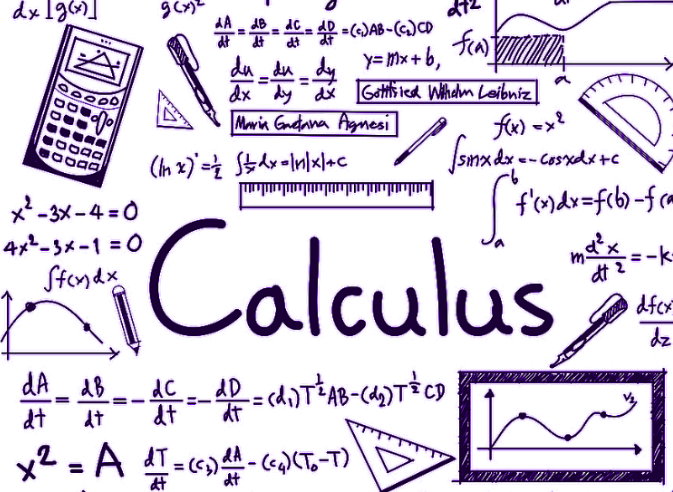 dx [g(x)]
g(x)²
dt²
dA/dt = dB/dt = dC/dt = dD/dt = (c₁)AB-(c₂)CD
f(a)
a
y=mx+b,
du/dx = du/dy = dy/dx
Gottfried Wilhelm Leibniz
Maria Gaetana Agnesi
f(x) = x²
(ln x)' = 1/2
∫1/x dx = ln|x|+c
∫sinx dx = -cosxdx+c
∫ₐᵇ f'(x)dx=f(b)-f(a
x²-3x-4=0
4x²-3x-1=0
m d²x/dt² = -k
∫f(x)dx
Calculus
df(x
dz
dA/dt = dB/dt = -dC/dt = -dD/dt = (d₁)T^½AB-(d₂)T^½CD
x² = A
dT/dt = (c₃)dA/dt - (c₄)(T₀-T)